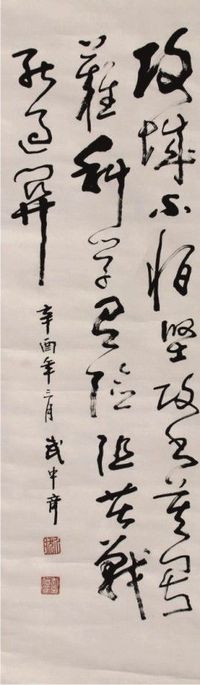 攻城不怕坚攻书莫畏
难科学有险阻苦战
能过关
辛酉年三月 武中奇